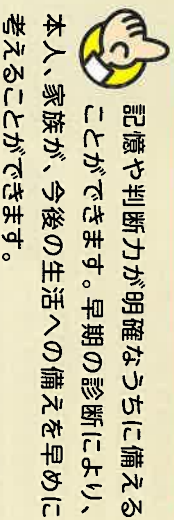 記憶や判断力が明確なうちに備える
ことができます。早期の診断により、
本人、家族が、今後の生活への備えを早めに
考えることができます。